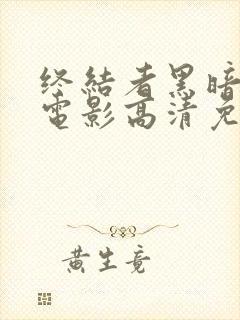 终结者黑暗
电影高清免
黄生竟